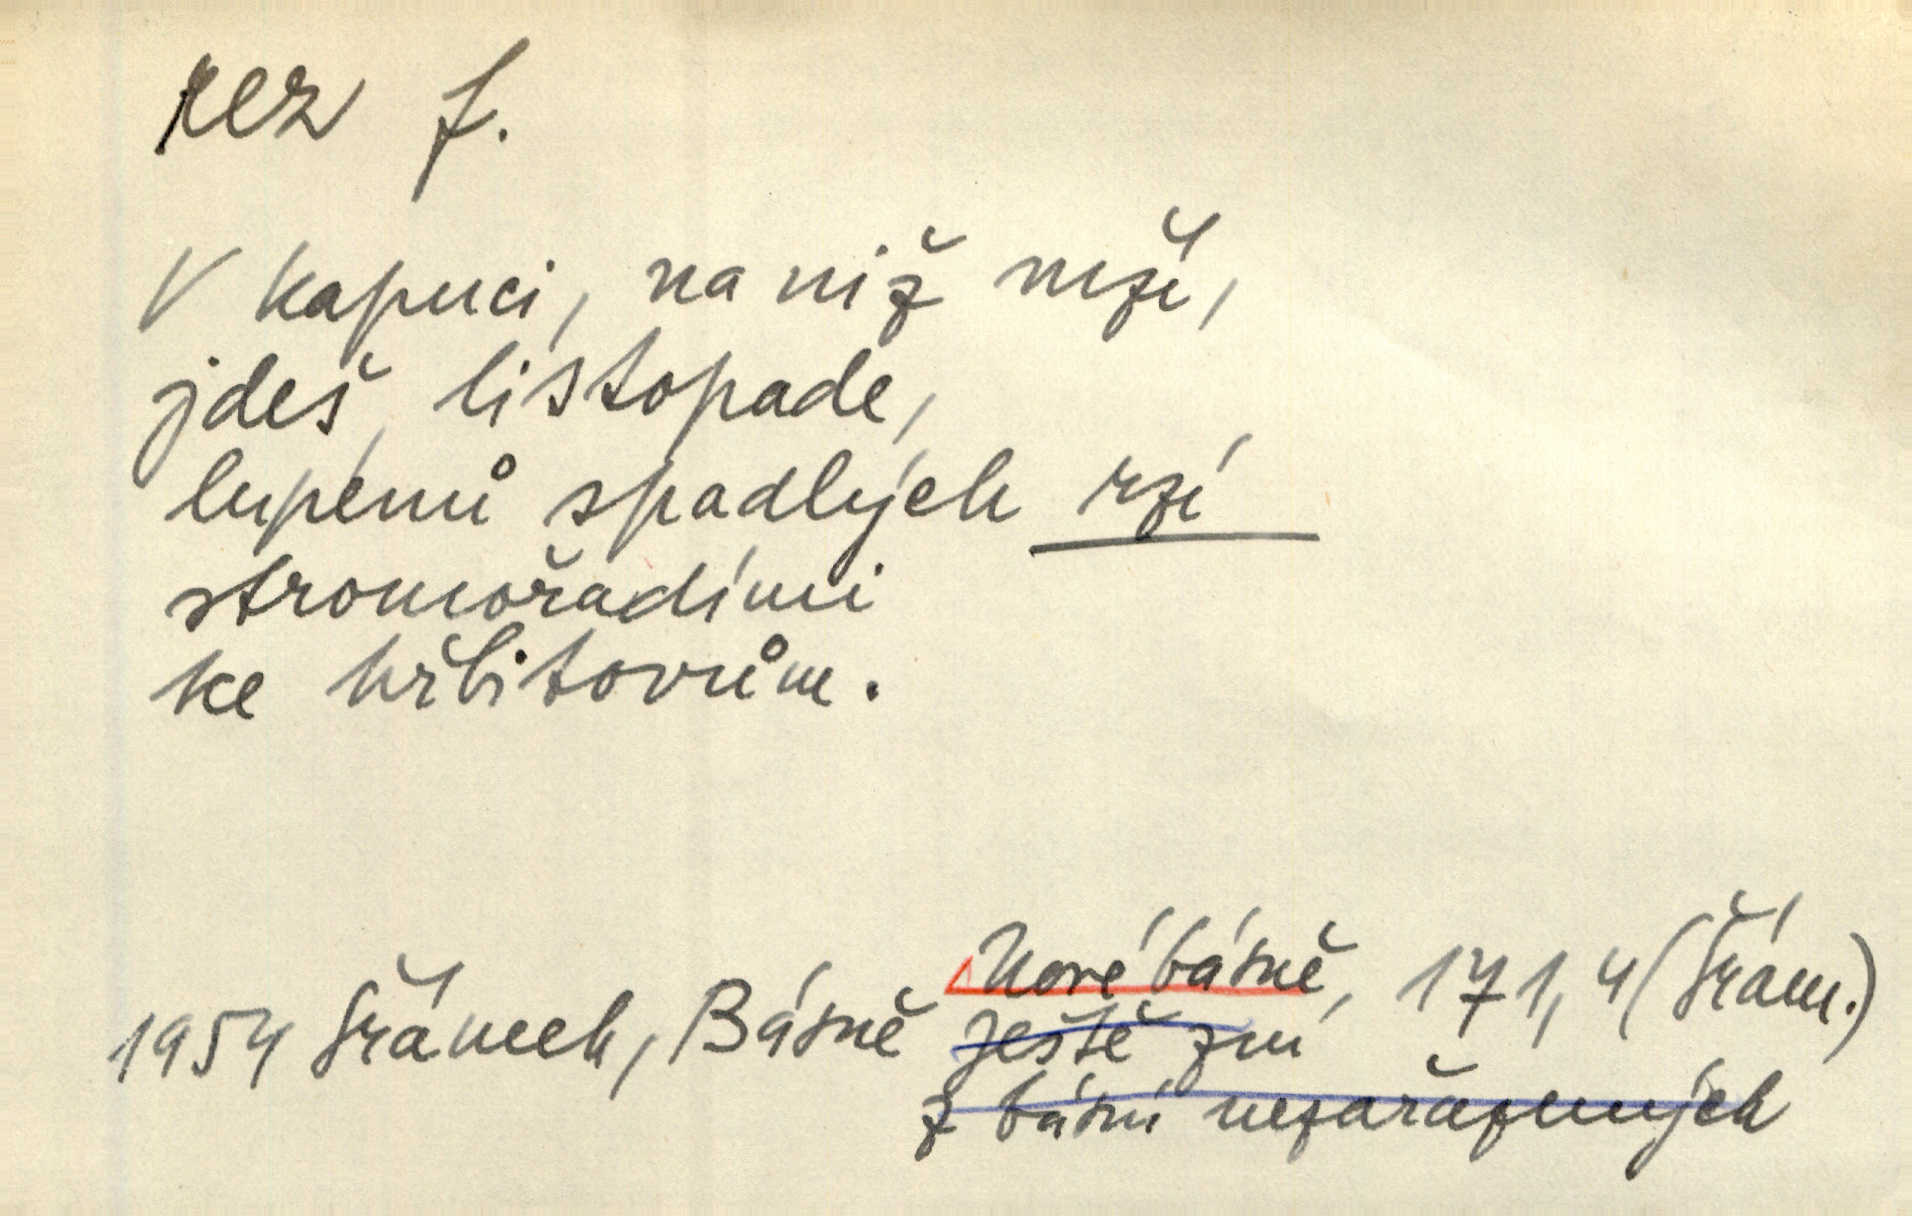 rez f.
V kapuci, na niž mží,
jdeš, listopade,
lupenů spadlých rzí
stromořadími
ke hřbitovům.
Nové básně, 171,4 (Šrám.)
1954 Šrámek, Básně Ještě zní
z básní nezařazených